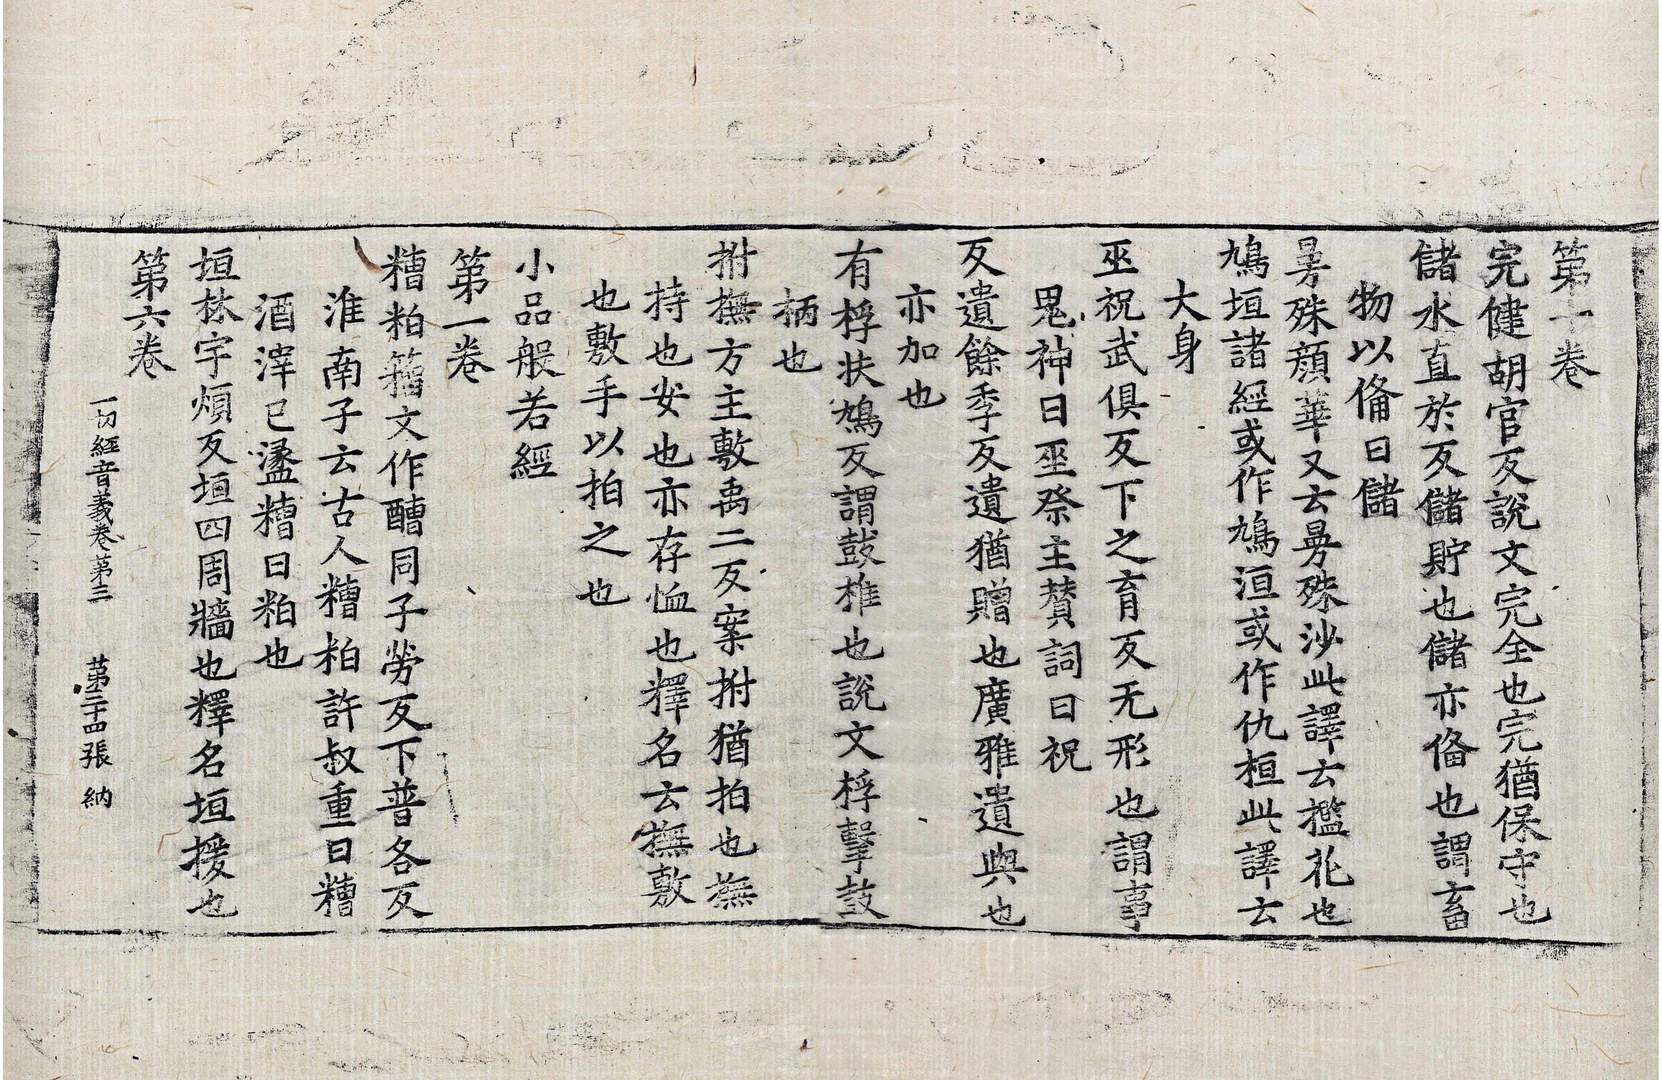 第十卷
完健胡官反說文完全也完猶保守也
儲水直於反儲貯也儲亦俻也謂畜
物以俻曰儲
㬅殊顔華又云㬅殊沙此譯云檻花也
鳩垣諸經或作鳩洹或作仇桓此譯云
大身
巫祝武俱反下之育反无形也謂事
鬼神曰巫祭主賛詞曰祝
反遺餘季反遺猶贈也廣雅遺與也
亦加也
有桴扶鳩反謂鼓椎也說文桴擊鼓
柄也
拊撫方主敷禹二反案拊猶拍也撫
持也安也亦存恤也釋名云撫敷
也敷手以拍之也
小品般若經
第一卷
糟粕籀文作醩同子勞反下普各反
淮南子云古人糟粕許叔重曰糟
酒滓已盪糟曰粕也
垣牀宇煩反垣四周牆也釋名垣援也
第六卷
一切經音義卷第三 第二十四張 納